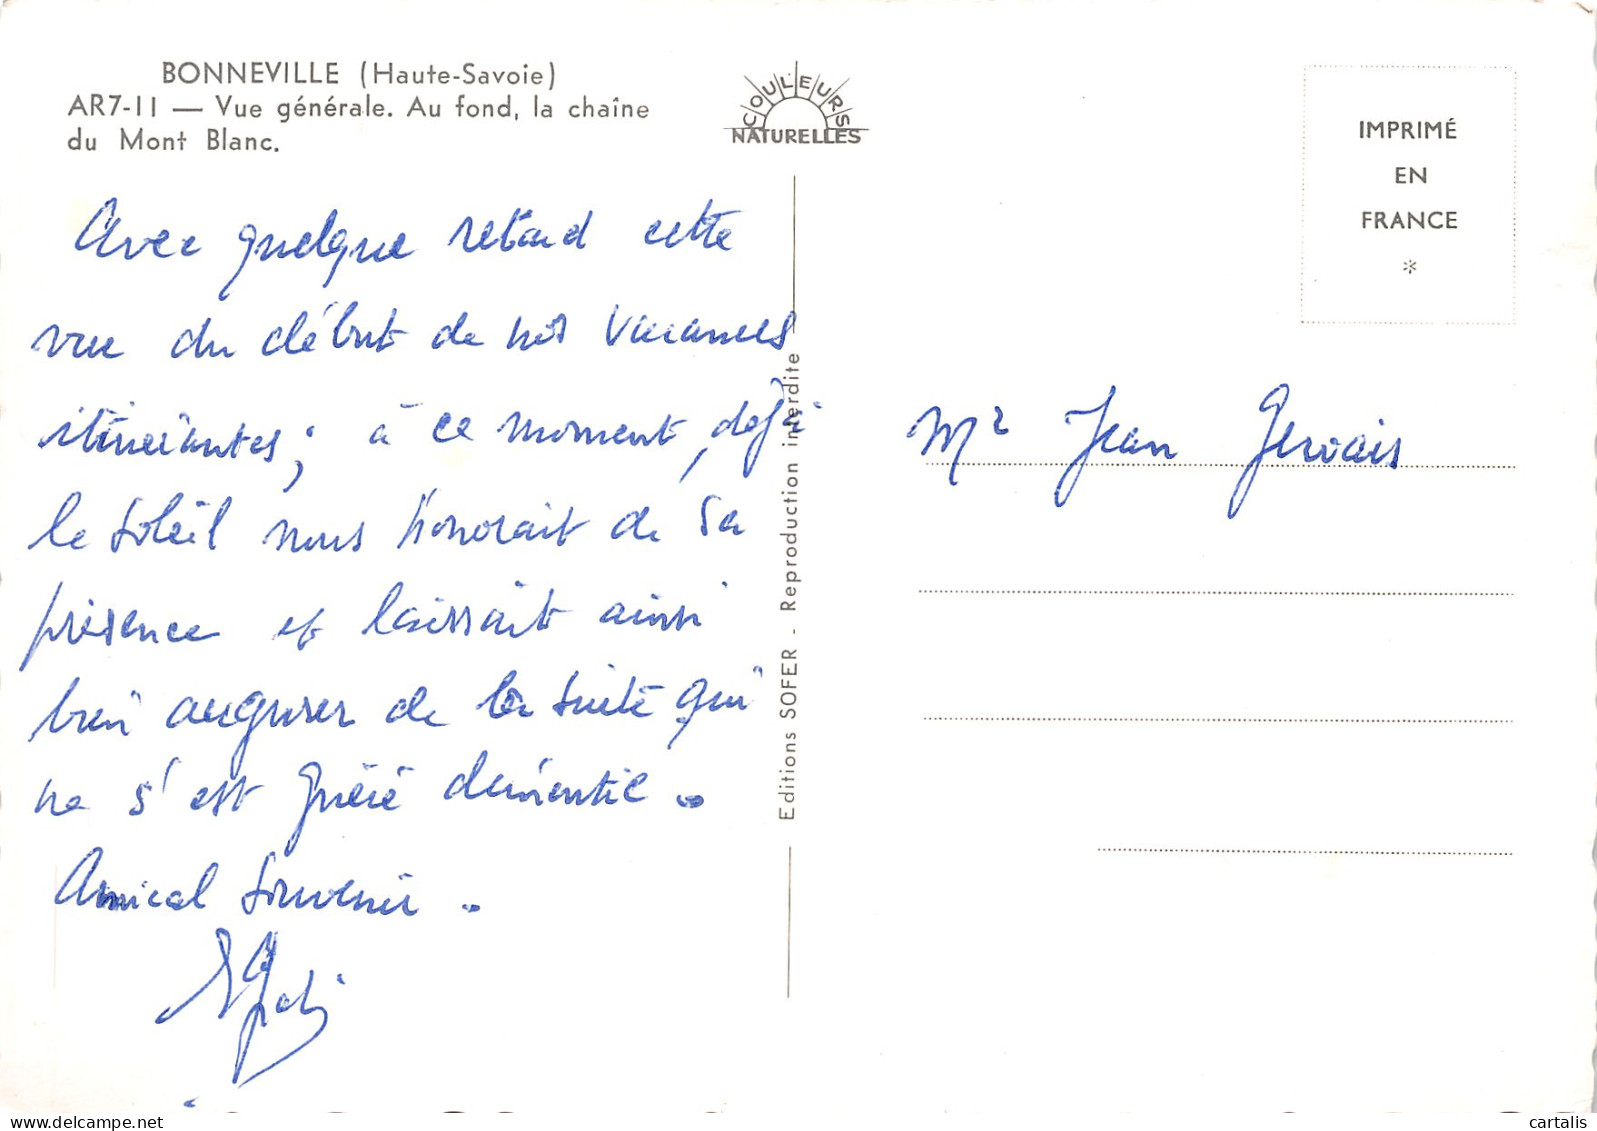 BONNEVILLE (Haute-Savoie)
AR7-11 — Vue générale. Au fond, la chaîne
du Mont Blanc.
COULEURS
NATURELLES
IMPRIMÉ
EN
FRANCE
*
Avec quelque retard cette
vue du début de nos vacances
itinérantes ; à ce moment, déjà
le soleil nous honorait de sa
présence et laissait ainsi
bien augurer de la suite qui
ne s'est guère démentie.
Amical souvenir.
Editions SOFER - Reproduction interdite
Mr Jean Gervais
cartalis